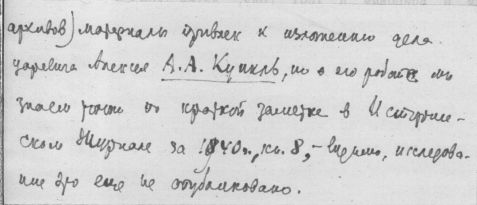 архивов) материалы привлек к изложению дела
царевича Алексея А. А. Куник, но о его работе мы
знаем только по краткой заметке в Историче-
ском Журнале за 1840 г., кн. 8, – видимо, исследова-
ние это еще не опубликовано.